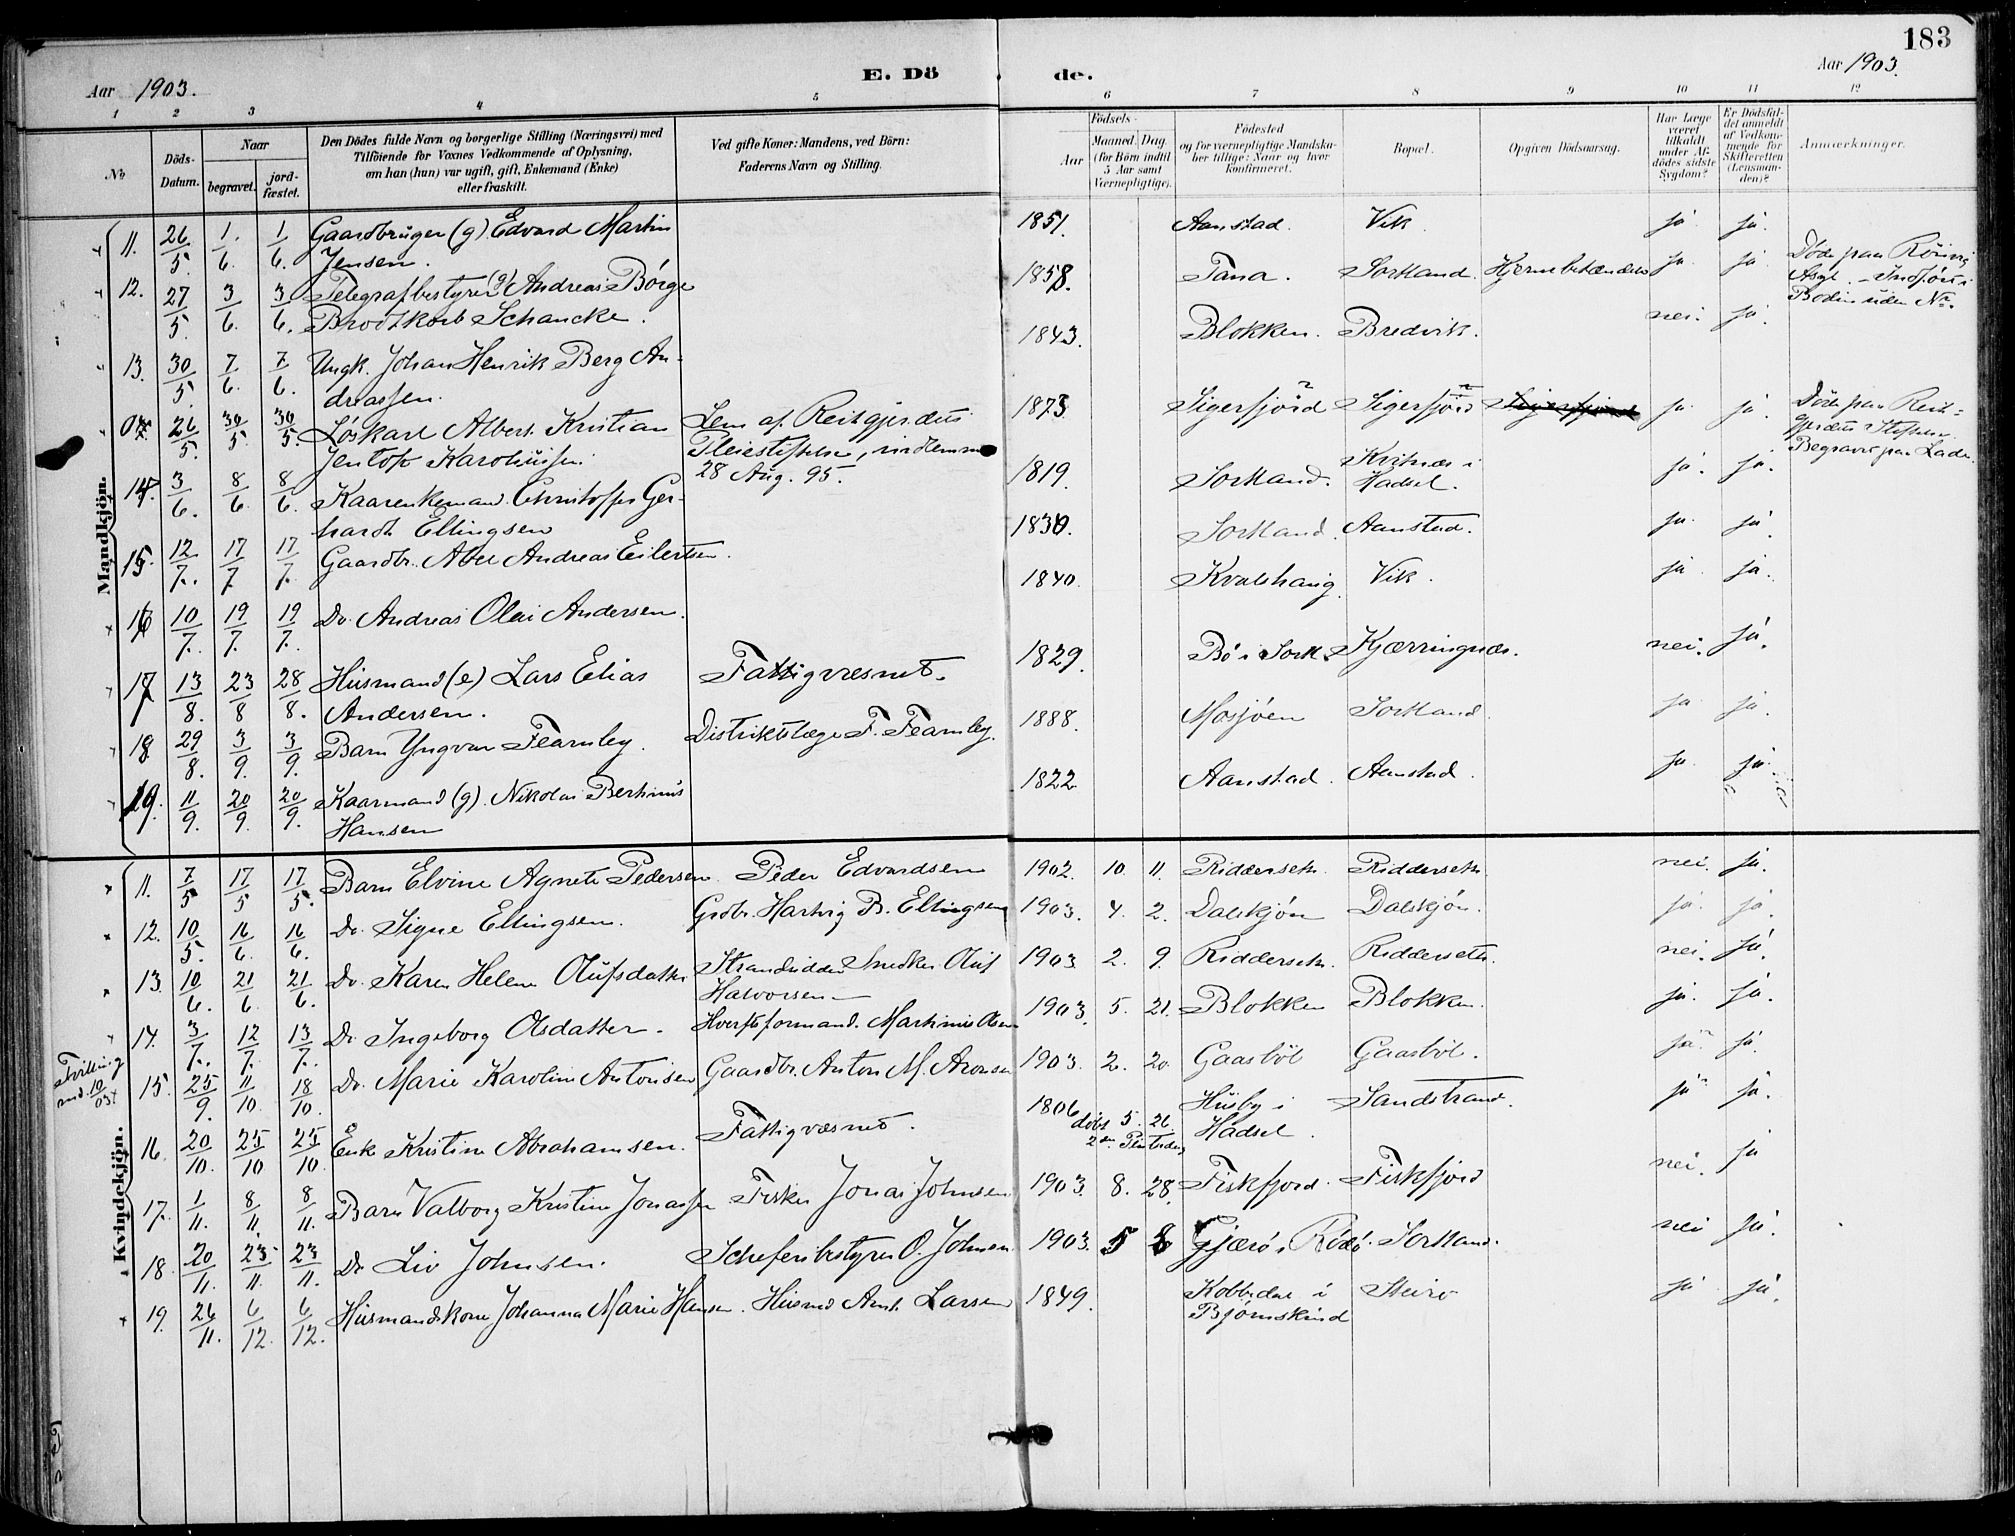 183
Aar 1903. E. Dö de. Aar 1903.
1 2 3 4 5 6 7 8 9 10 11 12
No Döds-Datum. Naar begravet. jordfæstet. Den Dödes fulde Navn og borgerlige Stilling (Næringsvei) med Tilföiende for Voxnes Vedkommende af Oplysning, om han (hun) var ugift, gift, Enkemand (Enke) eller fraskilt. Ved gifte Koner: Mandens, ved Börn: Faderens Navn og Stilling. Födsels- Aar Maaned. Dag. (for Börn indtil 5 Aar samt Værnepligtige). Födested og for værnepligtige Mandskaber tillige: Naar og hvor konfirmeret. Bopæl. Opgiven Dödsaarsag. Har Læge været tilkaldt under Afdödes sidste Sygdom? Er Dödsfaldet anmeldt af Vedkommende for Skifteretten (Lensmanden)? Anmærkninger.
Mandkjön.
11. 26/5 1/6. 1/6. Gaardbruger (g). Edvard Martin Jensen. 1851. Aanstad. Vik. ja. ja.
12. 27/5 3/6. 3/6. Telegrafbestyrer (g) Andreas Börge Brodtkorb Schancke. 1858. Tana. Sortland. Hjernebetændelse ja ja Död paa Rönvig Asyl. - Indför i Bodin uden No.
13. 30/5 7/6. 7/6. Ungk. Johan Henrik Berg Andreassen. 1843. Blokken. Bredvik. nei. ja.
26/5. 30/5 30/5 Löskarl Albert Kristian Jentoft Karoliussen. Lem af Reitgjerdets Pleiestiftelse, indlemm 28 Aug. 95. 1873 Sigerfjord Sigerfjord ja ja. Död paa Reitgjerdets Stiftelse. Begravet paa Lade.
14. 3/6. 8/6 8/6. Kaarenkemand. Christoffer Gerhardt Ellingsen 1819. Sortland. Kvitnes i Hadsel. ja. ja.
15. 12/7. 17/7 17/7. Gaardbr. Abel Andreas Eilertsen. 1830. Sortland. Aanstad. ja. ja.
16 10/7. 19/7. 19/7. Do. Andreas Olai Andersen. 1840. Kvalshaug. Vik. ja. ja.
17 13/8. 23/8 28/8. Husmand (e) Lars Elias Andersen. Fattigvæsnet. 1829. Bö i Sortl. Kjærringnes. nei. ja.
18. 29/8. 3/9. 3/9. Barn Yngvar Fearnley. Distriktslæge F. Fearnley. 1888. Mosjöen Sortland. ja. ja.
19. 11/9. 20/9. 20/9. Kaarmand (g). Nikolai Berthinus Hansen 1822 Aanstad. Aanstad. ja. ja.
Kvindekjön.
11. 7/5 17/5 17/5. Barn Elvine Agnete Pedersen. Peder Edvardsen 1902. 10. 11. Ridderseter. Ridderseter nei. ja.
12. 10/5. 16/6. 16/6. Do. Signe Ellingsen. Grdbr. Hartvig B. Ellingsen 1903. 4. 2. Dalskjön Dalskjön. ja. ja.
13. 10/6. 21/6. 21/6. Do. Karen Helene Olufsdatter Strandsidder Snedker Oluf Halvorsen 1903 2. 9. Ridderseter. Ridderseter. nei. ja.
14. 3/7. 12/7. 13/7. Do. Ingeborg Olsdatter. Hverftsformand. Martinus Olsen 1903. 5. 21. Blokken Blokken. ja. ja.
Tvilling
15. 25/9. 11/10. 18/10. Do. Marie Karoline Antonsen Gaardbr. Anton M. Aronsen 1903. 2. 20. Gaasböl Gaasböl. ja. ja.
16. 20/10. 25/10 25/10. Enke Kristine Abrahamsen. Fattigvæsnet. 1806 döbt 5. 26. 2den Pintsedag Husby i Hadsel. Sandstrand. ja. ja.
17. 1/11. 8/11. 8/11. Barn Valborg Kristine Jonassen Fisker Jonas Johnsen 1903. 8. 28. Fiskfjord. Fiskfjord nei. ja
18. 20/11. 23/11. 23/11. Do. Liv Johnsen. Schæferibestyrer O. Johnsen. 1903. 5 8 Gjærö i Rödö. Sortland. nei ja.
19. 26/11. 6/12. 6/12. Husmandskone Johanna Marie Hansen. Husmd Arnt. Larsen 1849. Kobbedal i Björnskind Steiro ja ja.